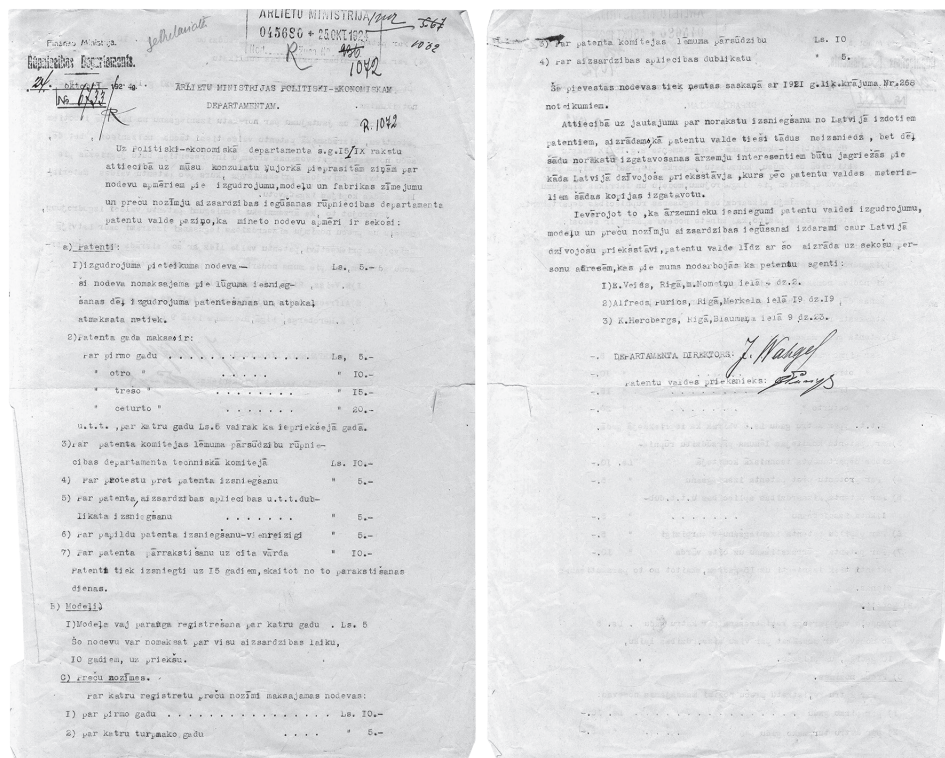 sekretariātā
Finansu Ministrija.
Rūpniecības Departaments.
24. oktobrī 1924g.
№ 6733
ĀRLIETU MINISTRIJA
045680 * 25.OKT.1924
R 1072
1072
ĀRLIETU MINISTRIJAS POLITISKI-EKONOMISKAM
DEPARTAMENTAM.
R. 1072
Uz Politiski-ekonomiskā departamenta s.g.I5/IX rakstu
attiecībā uz mūsu konzulatu Ņujorkā pieprasītām ziņām par
nodevu apmēriem pie izgudrojumu,modeļu un fabrikas zīmējumu
un preču nozīmju aizsardzības iegūšanas rūpniecības departamenta
patentu valde paziņo,ka minēto nodevu apmēri ir sekoši:
a) Patenti:
I)izgudrojuma pieteikuma nodeva— Ls. 5.-
šī nodeva nomaksājama pie lūguma iesnieg-
šanas dēļ izgudrojuma patentēšanas un atpakaļ
atmaksāta netiek.
2)Patenta gada maksa ir:
Par pirmo gadu . . . . . . . . . . . . Ls, 5.-
" otro " . . . . . " IO.-
" trešo " . . . . . . . . " I5.-
" ceturto " . . . . . . . " 20.-
u.t.t. ,par katru gadu Ls.5 vairāk kā iepriekšejā gadā.
3)Par patenta komitejas lēmuma pārsūdzību rūpnie-
cības departamenta techniskā komitejā Ls. IO.-
4) Par protestu pret patenta izsniegšanu " 5.-
5) Par patenta,aizsardzības apliecības u.t.t.dub-
likata izsniegšanu . . . . . . " 5.-
6) Par papildu patenta izsniegšanu-vienreizīgi " 5.-
7) Par patenta pārrakstīšanu uz cita vārda " IO.-
Patenti tiek izsniegti uz I5 gadiem,skaitot no to parakstīšanas
dienas.
b) Modeļi,
I)Modeļa vaj parauga registrēšana par katru gadu . Ls. 5
Šo nodevu var nomaksāt par visu aizsardzības laiku,
IO gadiem, uz priekšu.
C) Preču nozīmes.
Par katru registretu preču nozīmi maksājamas nodevas:
I) par pirmo gadu . . . . . . . . . . . . . . . Ls. IO.-
2) par katru turpmāko gadu . . . . " 5.-
3) Par patenta komitejas lēmuma pārsūdzību Ls. IO
4) Par aizsardzības apliecības dublikatu " 5.
Še pievestās nodevas tiek ņemtas saskaņā ar I921 g.lik.krājuma Nr.268
noteikumiem.
Attiecībā uz jautājumu par norakstu izsniegšanu no Latvijā izdotiem
patentiem, aizrādam,ka patentu valde tieši tādus neizsniedz , bet dēļ
šādu norakstu izgatavošanas ārzemju interesentiem būtu jāgriežās pie
kāda Latvijā dzīvojoša priekstāvja ,kurš pēc patentu valdes materia-
liem šādas kopijas izgatavotu.
Ievērojot to ,ka ārzemnieku iesniegumi patentu valdei izgudrojumu,
modeļu un preču nozīmju aizsardzības iegūšanai izdarāmi caur Latvijā
dzīvojošu priekštāvi,patentu valde līdz ar šo aizrāda uz sekošu per-
sonu adresēm,kas pie mums nodarbojās kā patentu agenti:
I)E.Veids, Rīgā,m.Mometiņu ielā 4 dz.2.
2)Alfreds Furios, Rīgā,Merķeļa ielā I9 dz.I9 ,
3) K.Hercbergs, Rīgā,Blaumaņa ielā 9 dz.23.
DEPARTAMENTA DIREKTORS:
Patentu valdes priekšnieks: